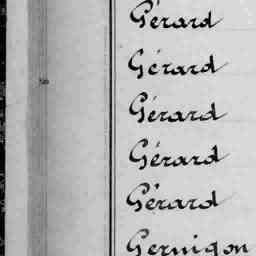 Gérard
Gérard
Gérard
Gérard
Gérard
Gernigon